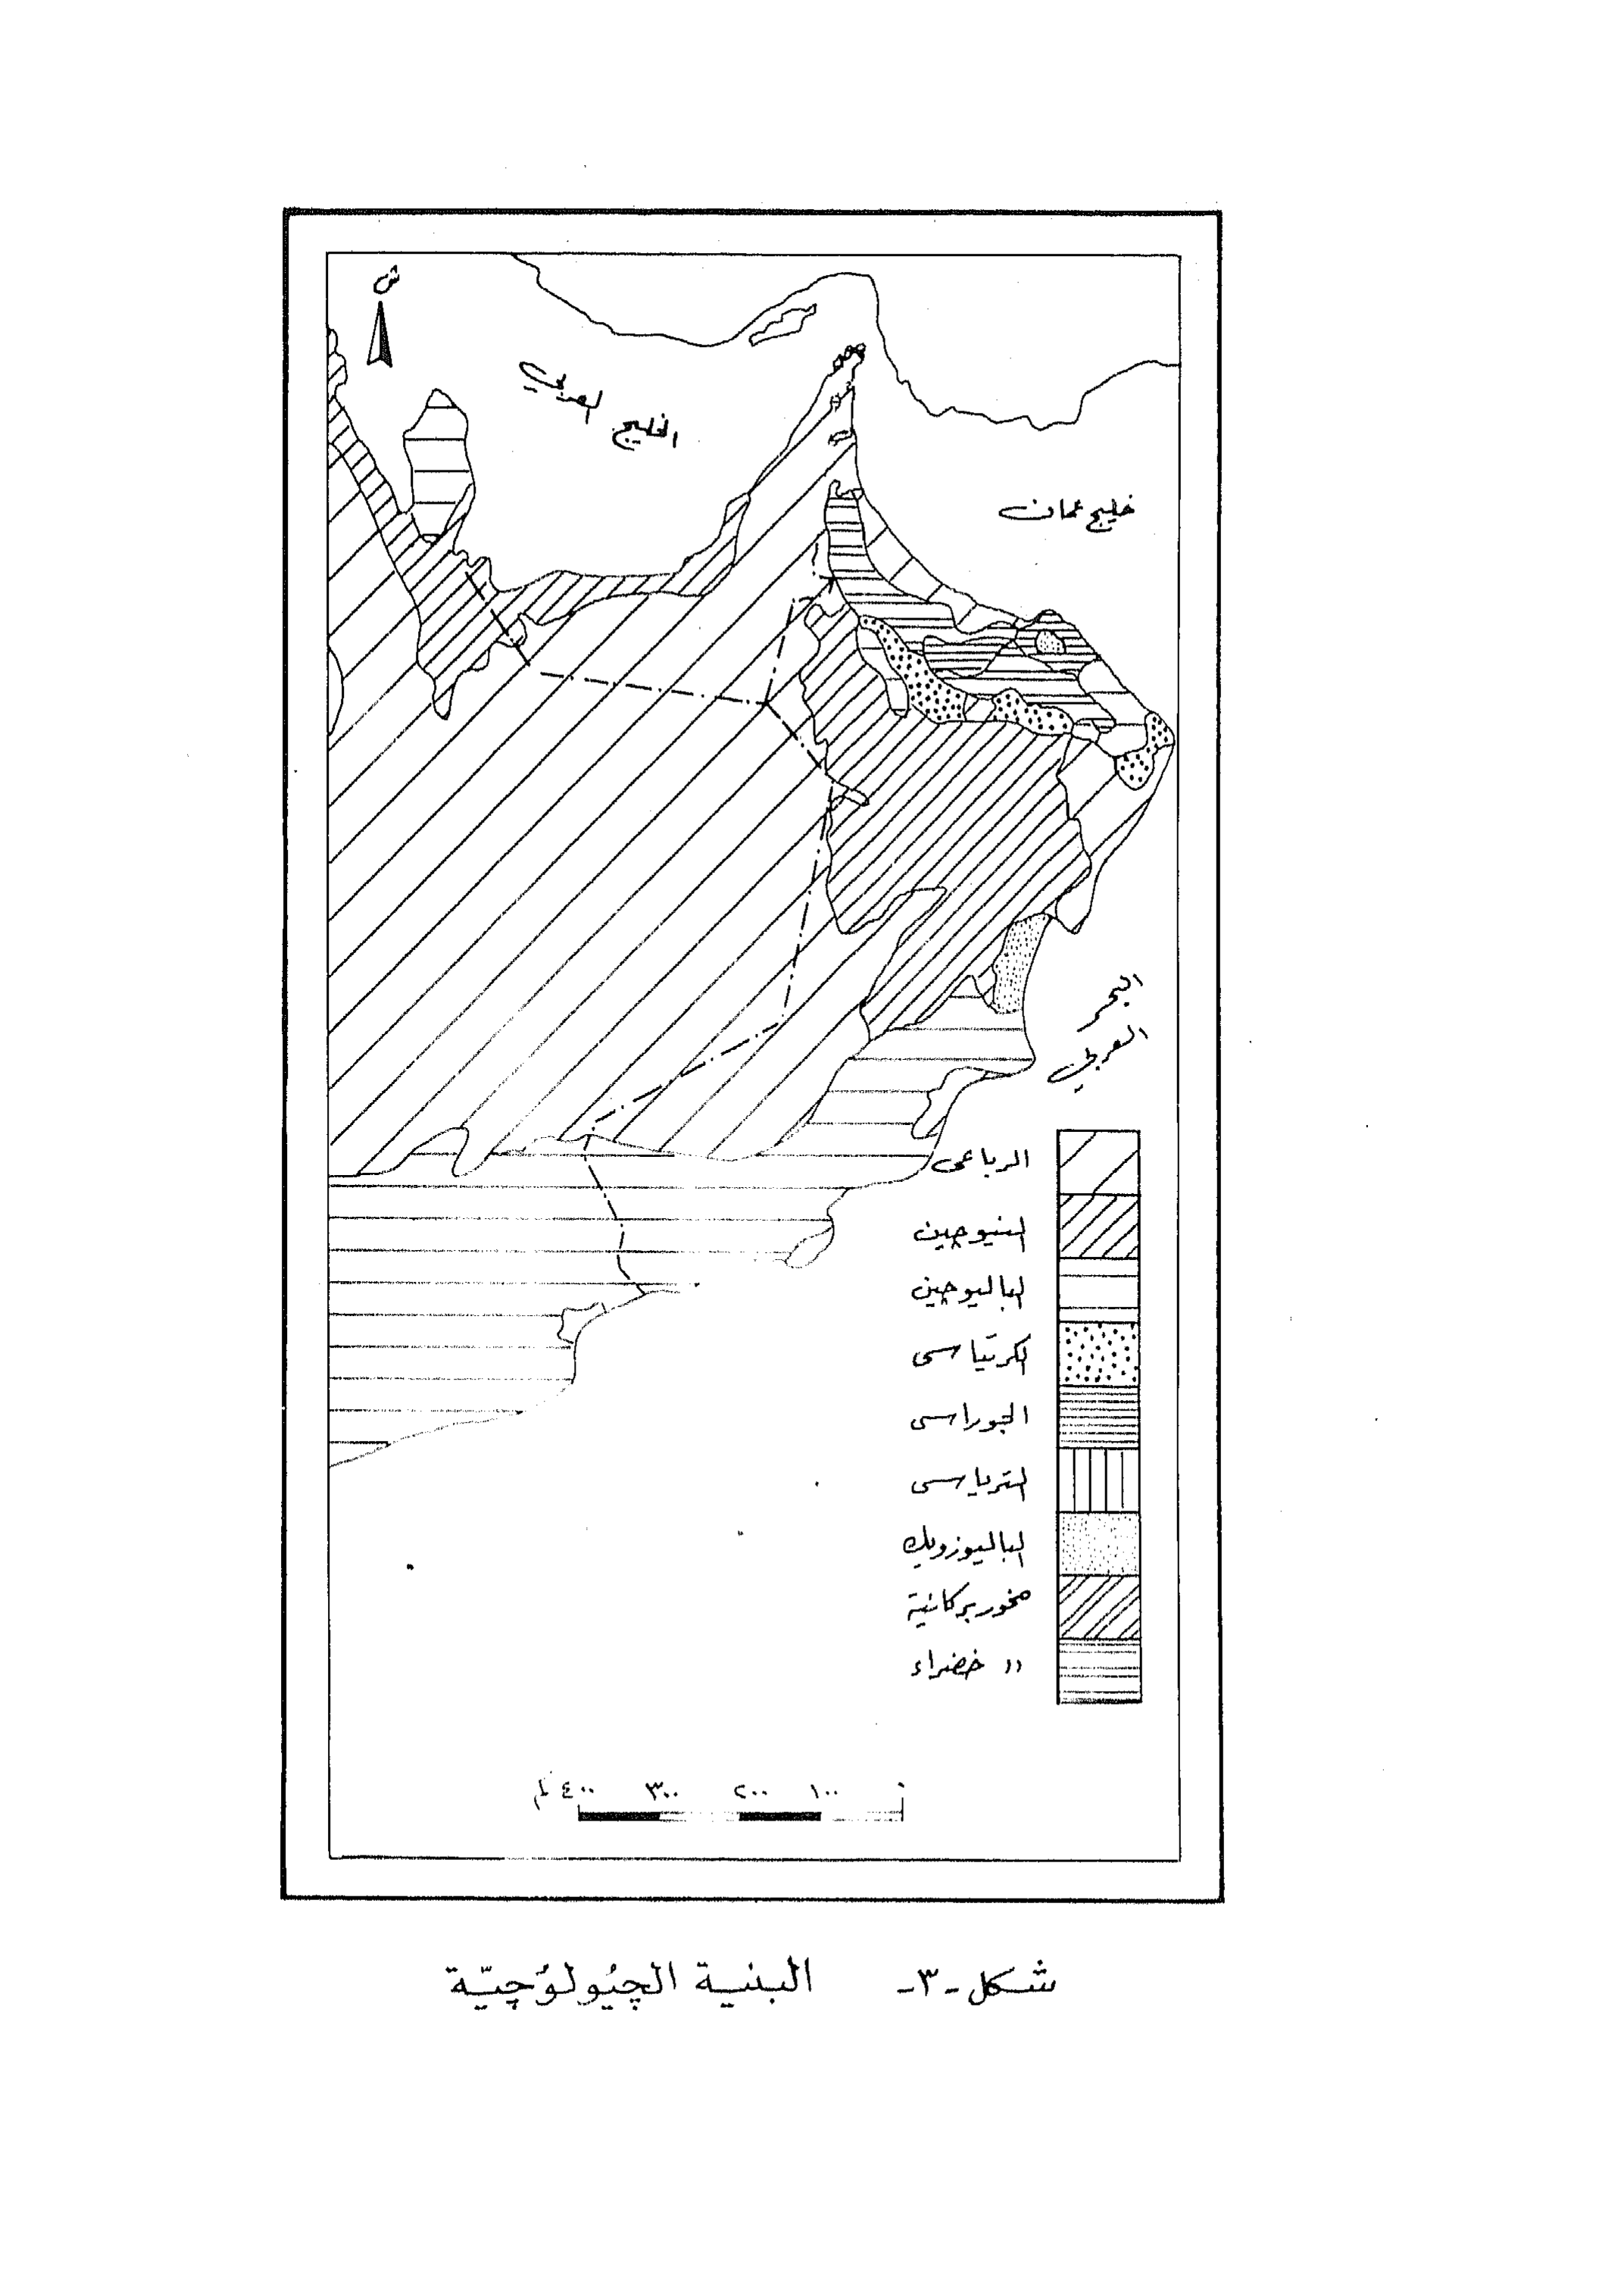 ش
الخليج العربي
خليج عمان
البحر
العربي
الرباعى
النيوجين
الباليوجين
الكرتياسى
الجوراسى
الترياسى
الباليوزويك
صخور بركانية
〃 خضراء
٠ ١٠٠ ٢٠٠ ٣٠٠ ٤٠٠ كم
شكل -٣- البنية الچيُولوُچيّة